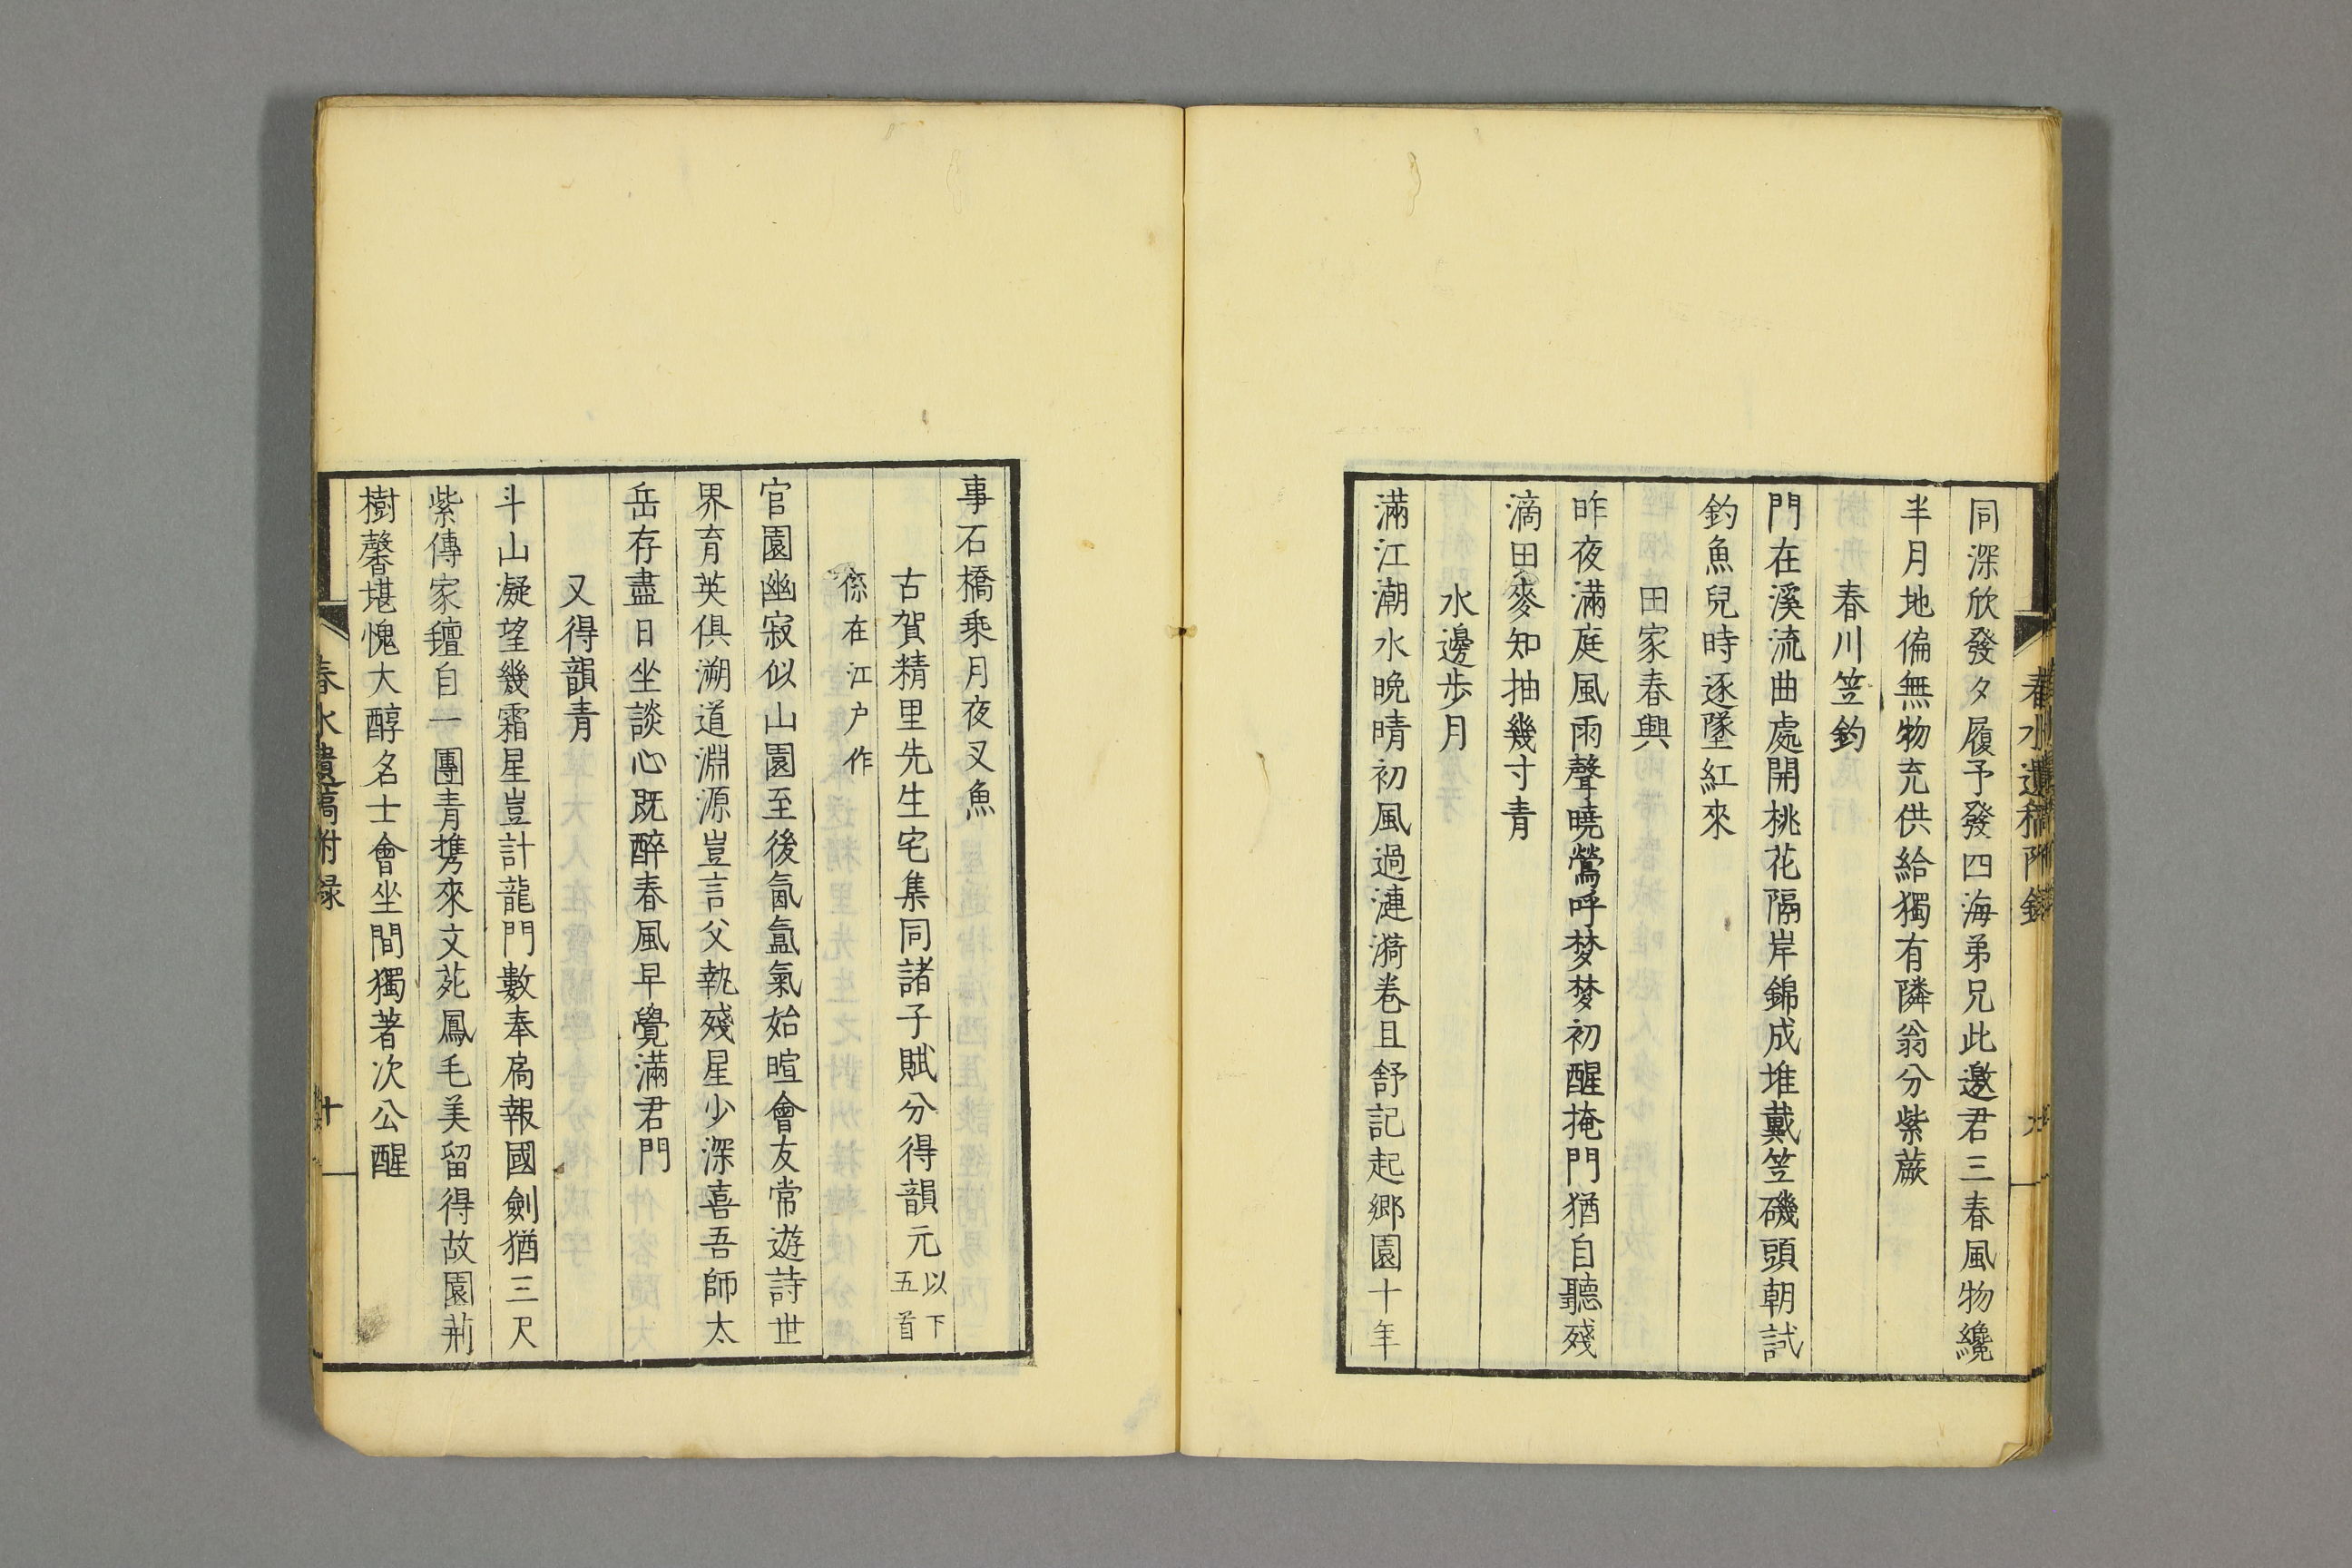 同深欣發夕履予發四海弟兄此邀君三春風物纔
半月地偏無物充供給獨有隣翁分紫蕨
春川笠釣
門在溪流曲處開桃花隔岸錦成堆戴笠磯頭朝試
釣魚兒時逐墜紅來
田家春興
昨夜滿庭風雨聲曉鶯呼梦梦初醒掩門猶自聽殘
滴田麥知抽幾寸青
水邊步月
滿江潮水晚晴初風過漣漪卷且舒記起鄉園十年
事石橋乘月夜叉魚
古賀精里先生宅集同諸子賦分得韻元以下五首
係在江户作
官園幽寂似山園至後氤氳氣始暄會友常遊詩世
界育英俱溯道淵源豈言父執殘星少深喜吾師太
岳存盡日坐談心既醉春風早覺滿君門
又得韻青
斗山凝望幾霜星豈計龍門數奉扃報國劍猶三尺
紫傳家氊自一團青携來文苑鳳毛美留得故園荊
樹馨堪愧大醇名士會坐間獨著次公醒
春水遺稿附録
十
春水遺稿附録
九